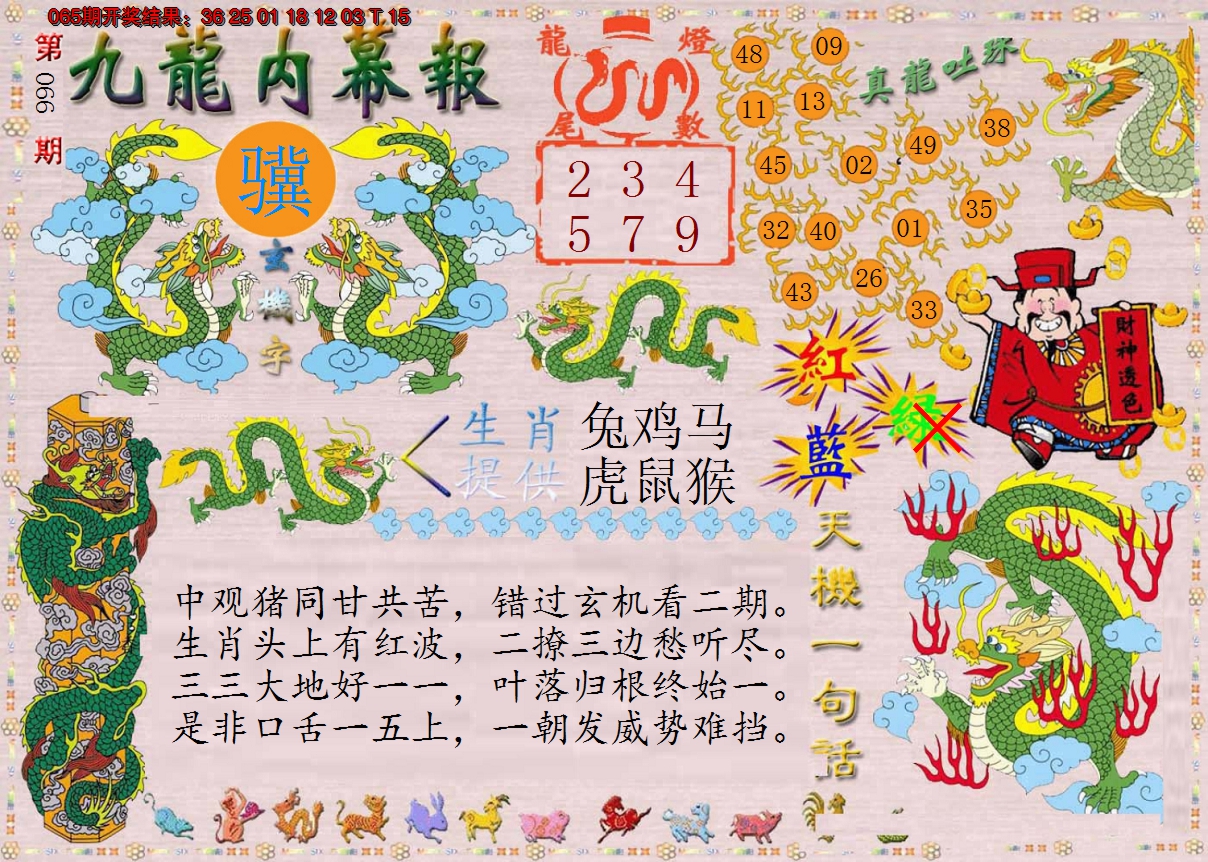 065期开奖结果：36 25 01 18 12 03 T 15
第066期
九龍内幕報
骥
玄機字
龍燈
尾數
2 3 4
5 7 9
真龍吐珠
48 09
11 13
45 02 49 38
32 40 01 35
43 26 33
財神透色
紅
綠
藍
生肖
提供
兔鸡马
虎鼠猴
天機一句话
中观猪同甘共苦，错过玄机看二期。
生肖头上有红波，二撩三边愁听尽。
三三大地好一一，叶落归根终始一。
是非口舌一五上，一朝发威势难挡。